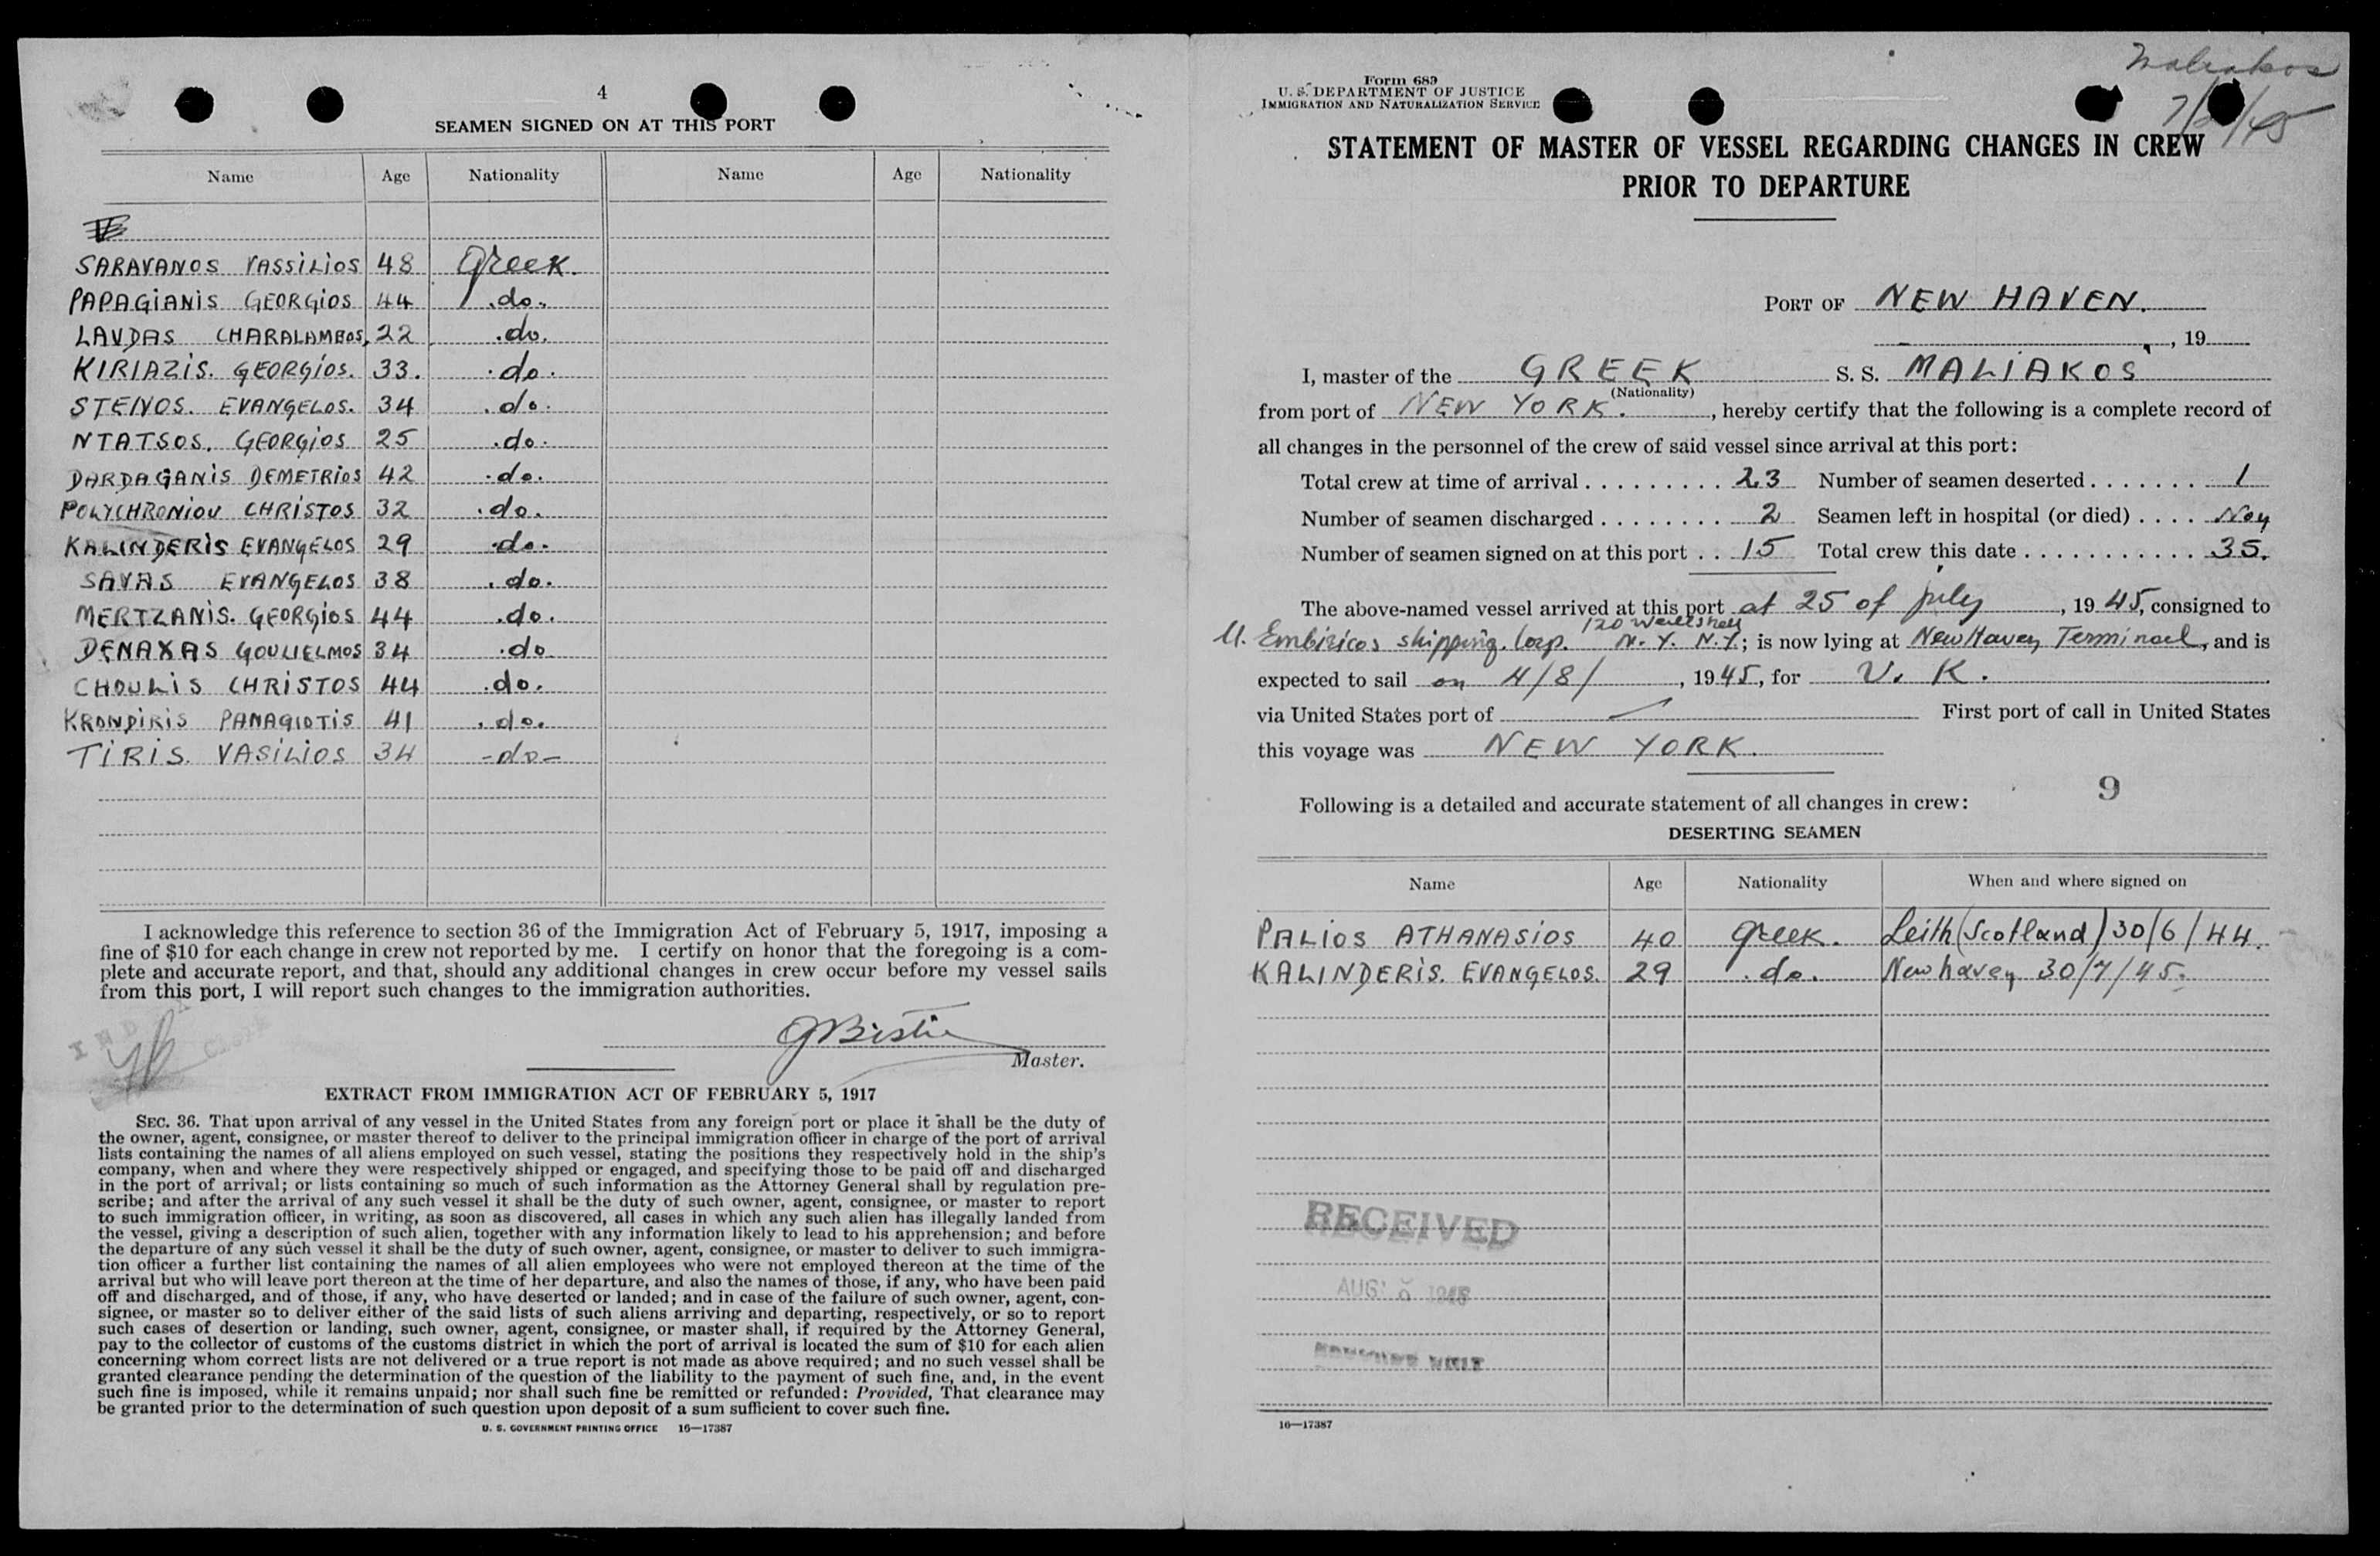 4
SEAMEN SIGNED ON AT THIS PORT
Name Age Nationality Name Age Nationality
SARAVANOS VASSILIOS 48 Greek.
PAPAGIANIS GEORGIOS 44 .do.
LAVDAS CHARALAMBOS. 22 .do.
KIRIAZIS. GEORGIOS. 33. .do.
STENOS. EVANGELOS. 34 .do.
NTATSOS. GEORGIOS 25 .do.
DARDAGANIS DEMETRIOS 42 .do.
POLYCHRONIOU CHRISTOS 32 .do.
KALINDERIS EVANGELOS 29 .do.
SAVAS EVANGELOS 38 .do.
MERTZANIS. GEORGIOS 44 .do.
DENAXAS GOULIELMOS 34 .do
CHOULIS CHRISTOS 44 .do.
KRONDIRIS PANAGIOTIS 41 .do.
TIRIS. VASILIOS 34 -do-
I acknowledge this reference to section 36 of the Immigration Act of February 5, 1917, imposing a
fine of $10 for each change in crew not reported by me. I certify on honor that the foregoing is a com-
plete and accurate report, and that, should any additional changes in crew occur before my vessel sails
from this port, I will report such changes to the immigration authorities.
Master.
EXTRACT FROM IMMIGRATION ACT OF FEBRUARY 5, 1917
SEC. 36. That upon arrival of any vessel in the United States from any foreign port or place it shall be the duty of
the owner, agent, consignee, or master thereof to deliver to the principal immigration officer in charge of the port of arrival
lists containing the names of all aliens employed on such vessel, stating the positions they respectively hold in the ship's
company, when and where they were respectively shipped or engaged, and specifying those to be paid off and discharged
in the port of arrival; or lists containing so much of such information as the Attorney General shall by regulation pre-
scribe; and after the arrival of any such vessel it shall be the duty of such owner, agent, consignee, or master to report
to such immigration officer, in writing, as soon as discovered, all cases in which any such alien has illegally landed from
the vessel, giving a description of such alien, together with any information likely to lead to his apprehension; and before
the departure of any such vessel it shall be the duty of such owner, agent, consignee, or master to deliver to such immigra-
tion officer a further list containing the names of all alien employees who were not employed thereon at the time of the
arrival but who will leave port thereon at the time of her departure, and also the names of those, if any, who have been paid
off and discharged, and of those, if any, who have deserted or landed; and in case of the failure of such owner, agent, con-
signee, or master so to deliver either of the said lists of such aliens arriving and departing, respectively, or so to report
such cases of desertion or landing, such owner, agent, consignee, or master shall, if required by the Attorney General,
pay to the collector of customs of the customs district in which the port of arrival is located the sum of $10 for each alien
concerning whom correct lists are not delivered or a true report is not made as above required; and no such vessel shall be
granted clearance pending the determination of the question of the liability to the payment of such fine, and, in the event
such fine is imposed, while it remains unpaid; nor shall such fine be remitted or refunded: Provided, That clearance may
be granted prior to the determination of such question upon deposit of a sum sufficient to cover such fine.
U. S. GOVERNMENT PRINTING OFFICE 16—17387
Maliakos
Form 689
U. S. DEPARTMENT OF JUSTICE
IMMIGRATION AND NATURALIZATION SERVICE
STATEMENT OF MASTER OF VESSEL REGARDING CHANGES IN CREW
PRIOR TO DEPARTURE
PORT OF NEW HAVEN.
, 19
I, master of the GREEK S. S. MALIAKOS
(Nationality)
from port of NEW YORK. , hereby certify that the following is a complete record of
all changes in the personnel of the crew of said vessel since arrival at this port:
Total crew at time of arrival . . . . . . . . . 23 Number of seamen deserted . . . . . . . 1
Number of seamen discharged . . . . . . . . 2 Seamen left in hospital (or died) . . . .
Number of seamen signed on at this port . . 15 Total crew this date . . . . . . . . . . . 35.
The above-named vessel arrived at this port at 25 of july , 1945, consigned to
120 Wall street
M. Embiricos shipping. Corp. N. Y. N.Y.; is now lying at New Haven Terminal, and is
expected to sail on 4/8/ , 1945, for U. K.
via United States port of First port of call in United States
this voyage was NEW YORK.
9
Following is a detailed and accurate statement of all changes in crew:
DESERTING SEAMEN
Name Age Nationality When and where signed on
PALIOS ATHANASIOS 40 greek. Leith (Scotland) 30/6/44.
KALINDERIS. EVANGELOS. 29 .do. New haven 30/7/45.
RECEIVED
AUG 1945
16—17387